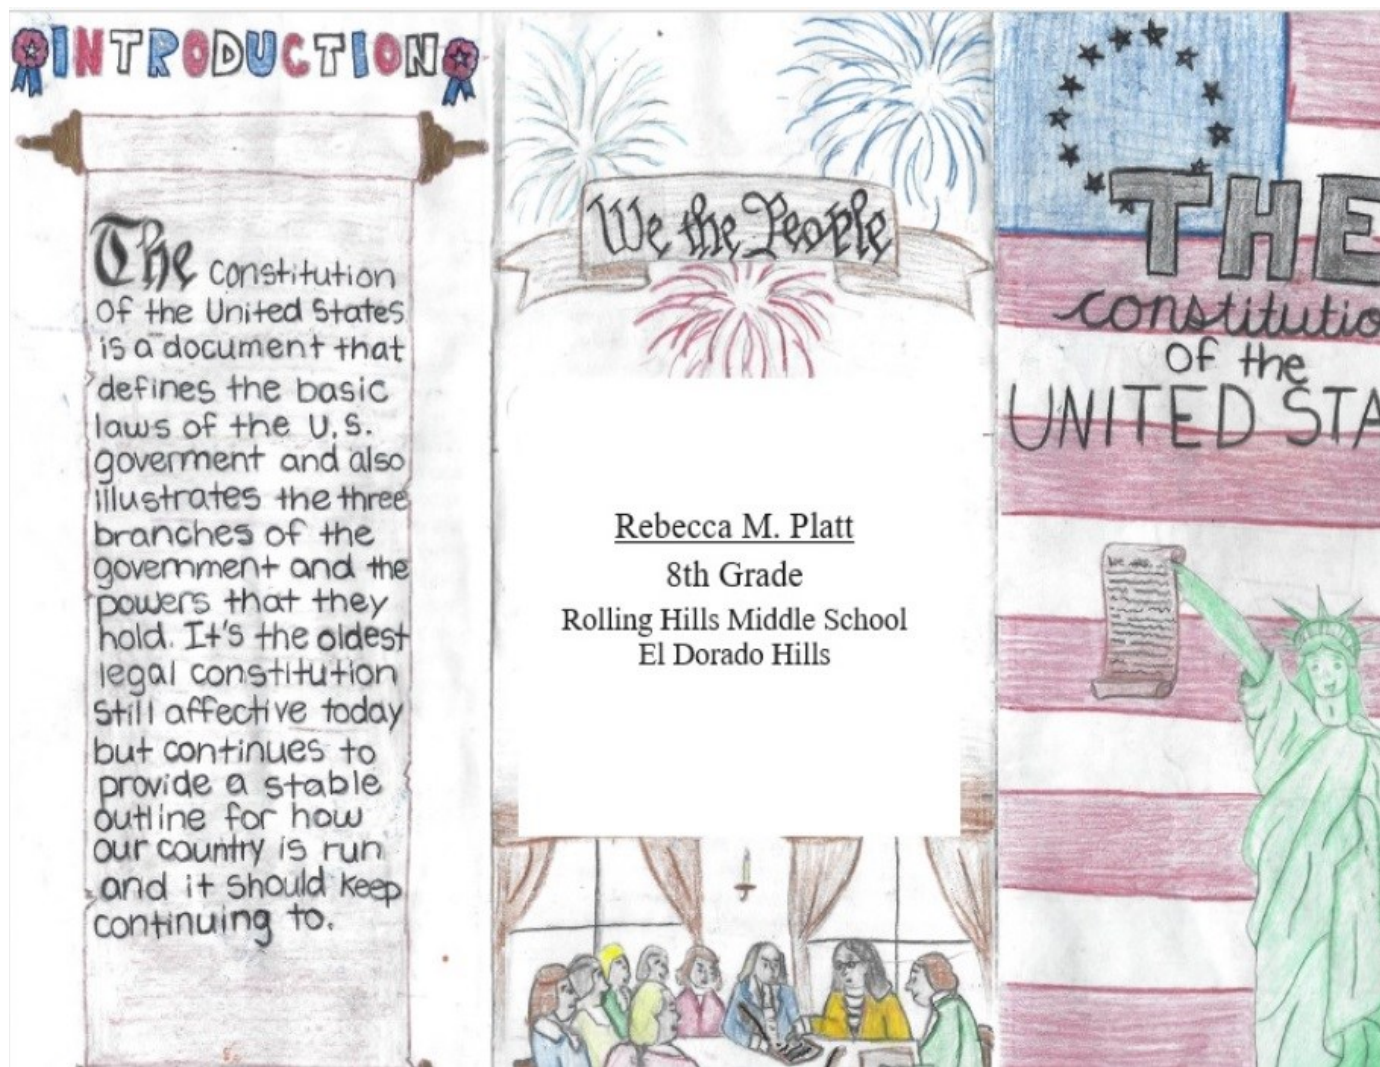 INTRODUCTION
The constitution
of the United States
is a document that
defines the basic
laws of the U.S.
goverment and also
illustrates the three
branches of the
government and the
powers that they
hold. It's the oldest
legal constitution
still affective today
but continues to
provide a stable
outline for how
our country is run
and it should keep
continuing to.
We the People
Rebecca M. Platt
8th Grade
Rolling Hills Middle School
El Dorado Hills
THE
constitutio
of the
UNITED STA
We the